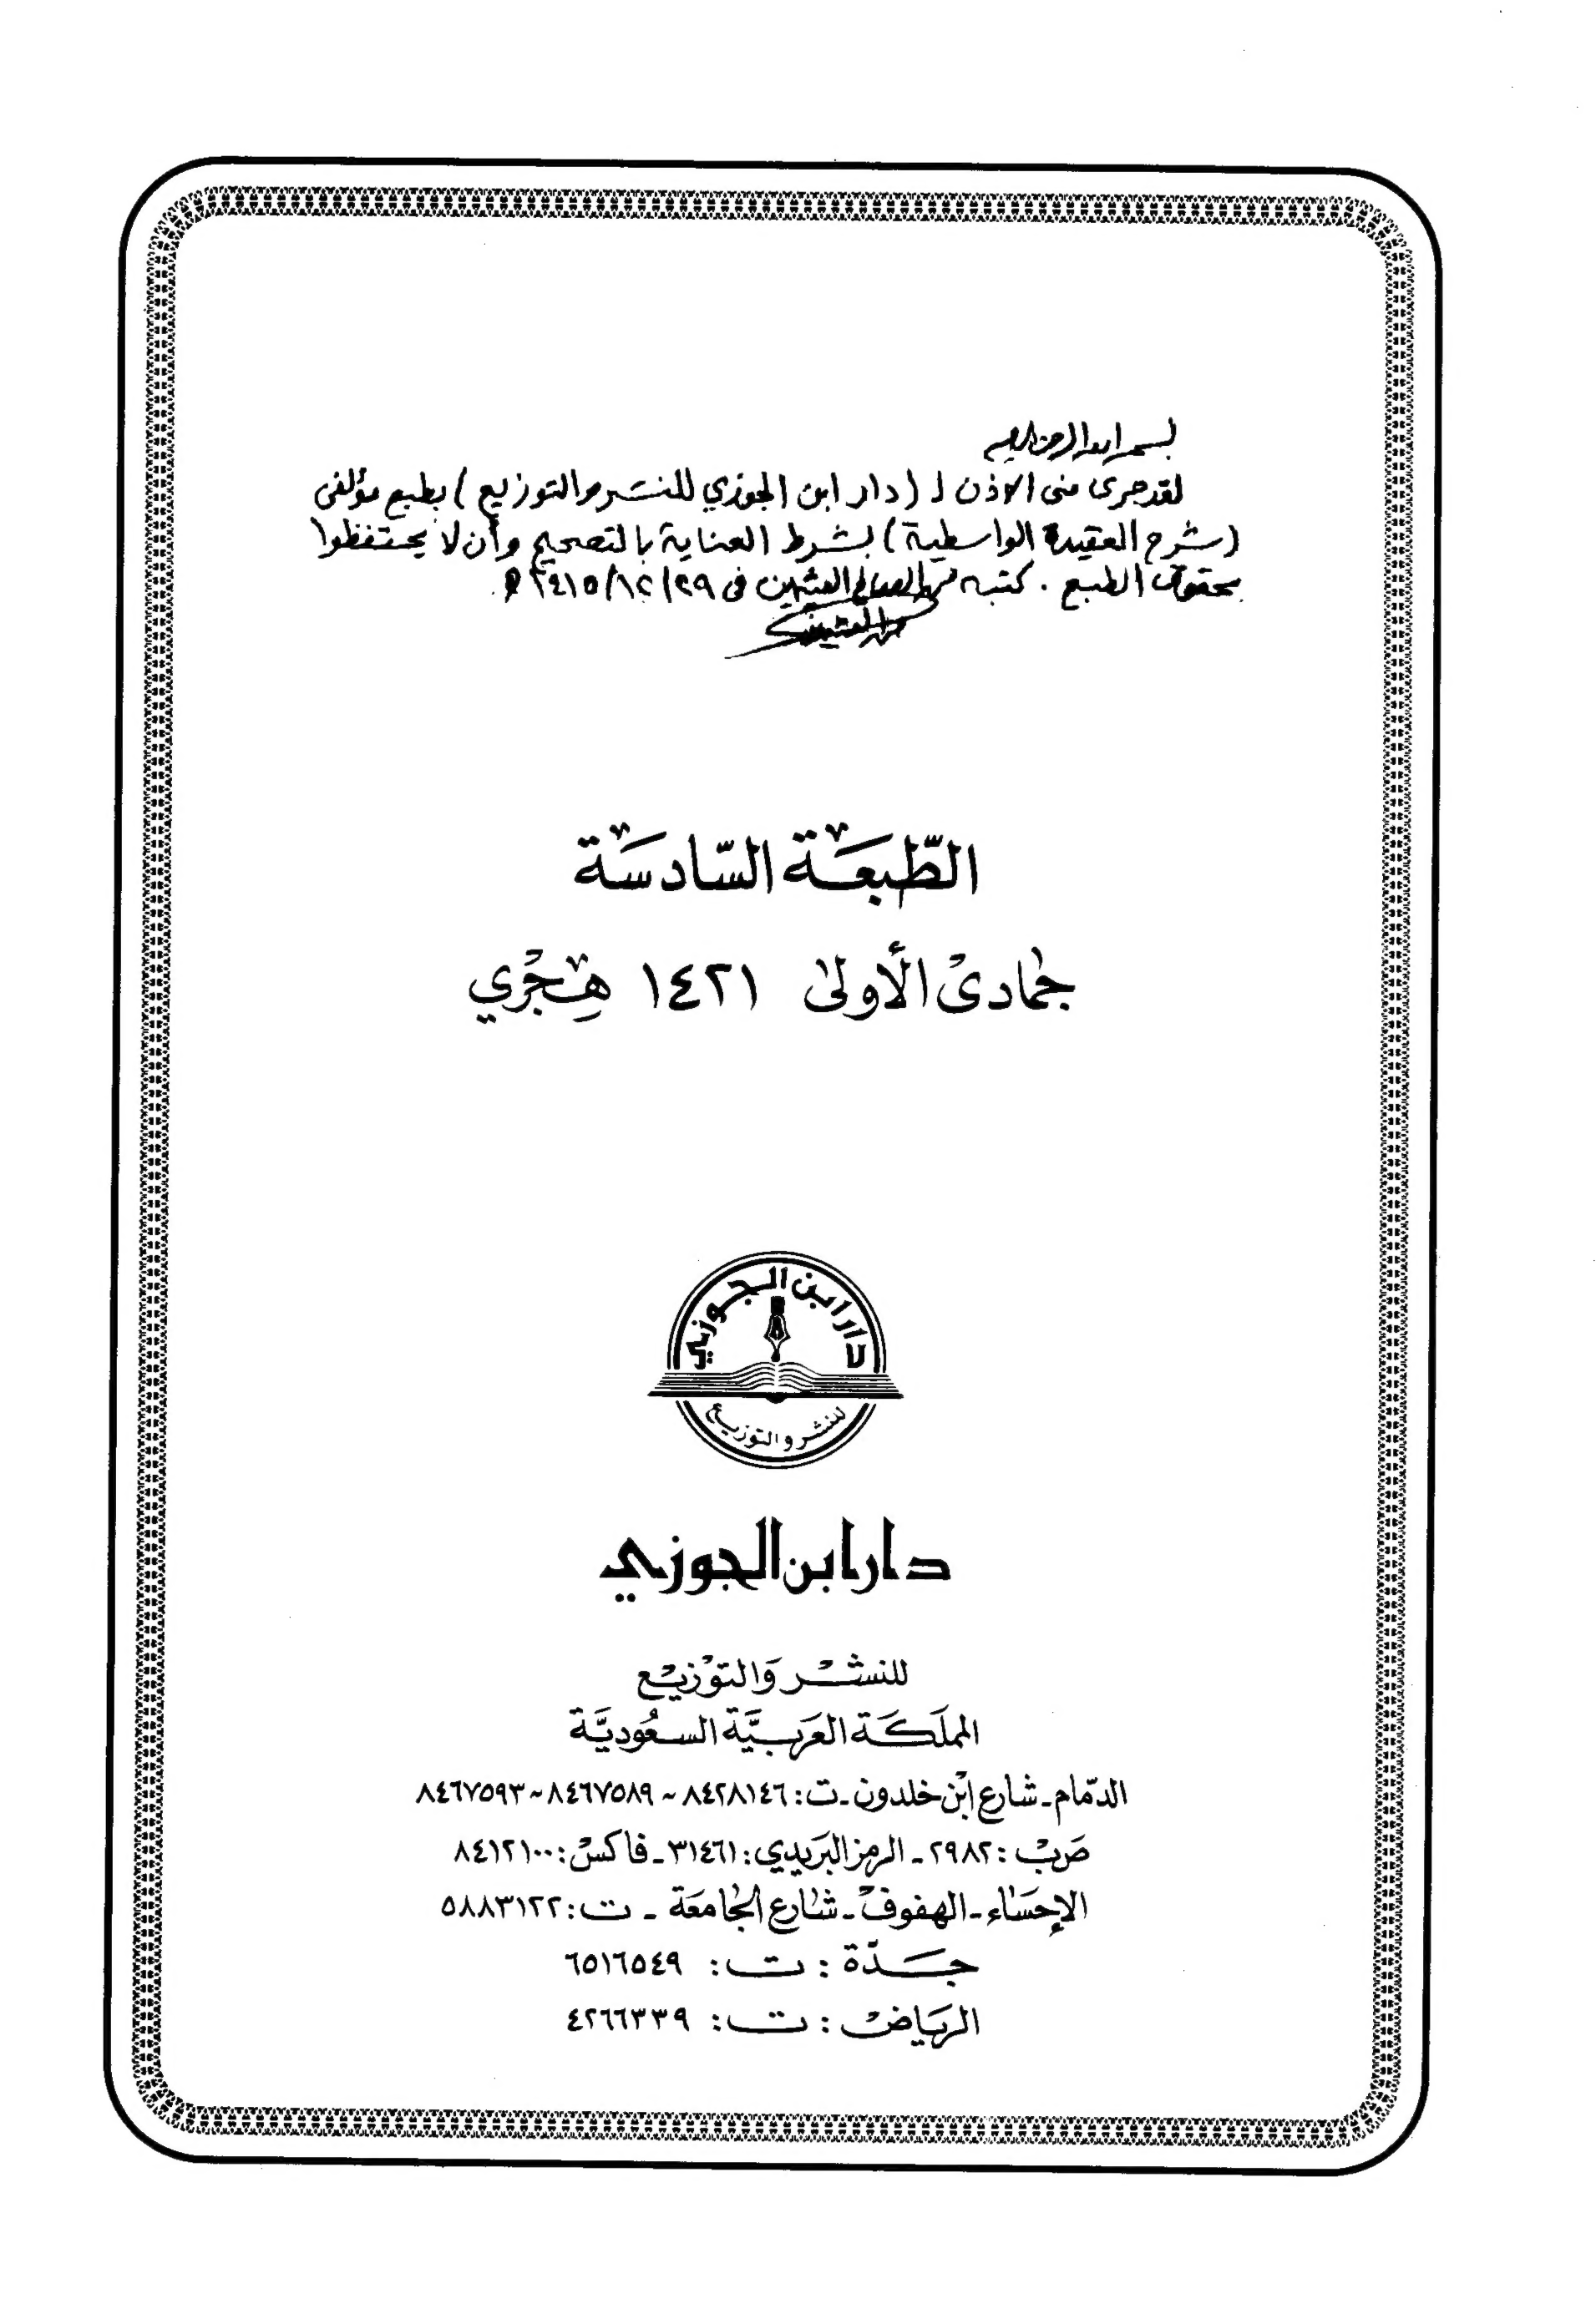 بسم الله الرحمن الرحيم
لقد جرى منى الاذن لـ (دار ابن الجوزي للنشر والتوزيع) بطبع مؤلفى
(شرح العقيدة الواسطية) بشرط العناية بالتصحيح وأن لا يحتفظوا
بحقوق الطبع . كتبه محمد الصالح العثيمين فى ٢٩/١٢/١٤١٥ هـ
محمد العثيمين
الطَّبعَة السَّادسَة
جُمادىْ الأولىٰ ١٤٢١ هِجْري
دار ابن الجوزي
للنشر والتوزيع
دار ابن الجوزي
للنشْر وَالتوْزيْع
المملَكَة العَرَبيَّة السعُوديَّة
الدمّام - شارع ابْن خلدون - ت: ٨٤٢٨١٤٦ ~ ٨٤٦٧٥٨٩ ~ ٨٤٦٧٥٩٣
صَ‌بْ: ٢٩٨٢ - الرمز البَريدي: ٣١٤٦١ - فاكسْ: ٨٤١٢١٠٠
الإحسَاء - الهفوفْ - شارع الجَامعَة - ت: ٥٨٨٣١٢٢
جَدّة: ت: ٦٥١٦٥٤٩
الريَاضْ: ت: ٤٢٦٦٣٣٩